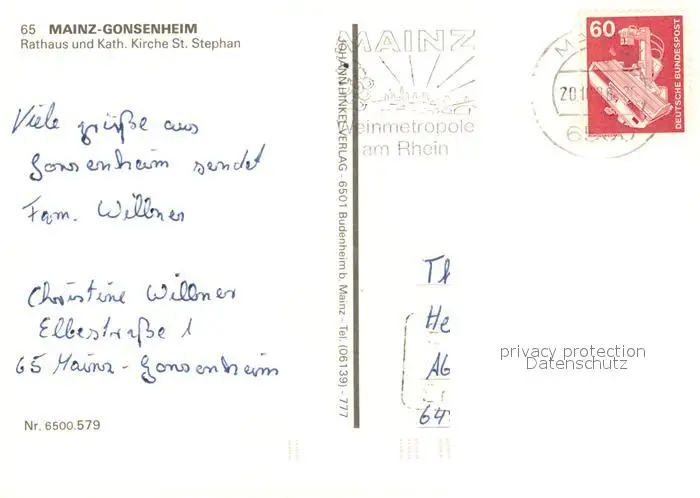 65 MAINZ-GONSENHEIM
Rathaus und Kath. Kirche St. Stephan
Viele grüße aus
Gonsenheim sendet
Fam. Willner
Christine Willner
Elbestraße 1
65 Mainz - Gonsenheim
Nr. 6500.579
JOHANN HINKEL VERLAG - 6501 Budenheim b. Mainz - Tel. (06139) - 777
MAINZ
Weinmetropole
am Rhein
60
DEUTSCHE BUNDESPOST
Th
He
AG
64
privacy protection
Datenschutz